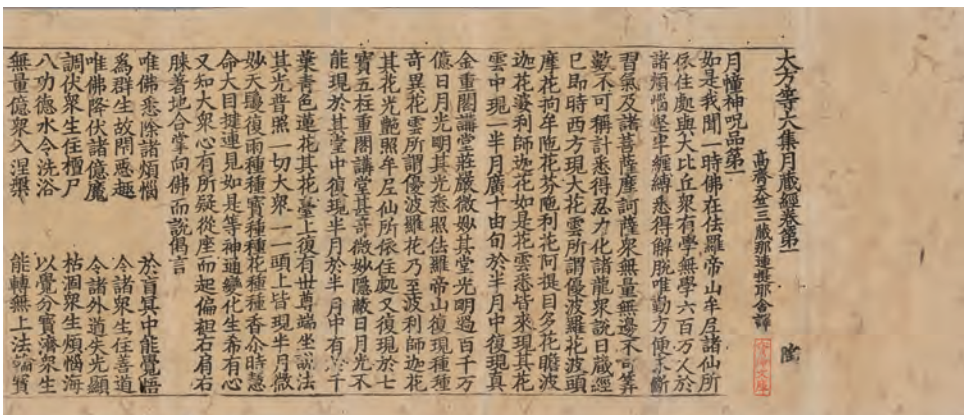 大方等大集月藏經卷第一
高齊天竺三藏那連提耶舍譯
陰
月幢神呪品第一
如是我聞一時佛在佉羅帝山牟尼諸仙所
依住處與大比丘衆有學無學六百万人於
諸煩惱堅牢纏縛悉得解脱唯勤方便求斷
習氣及諸菩薩摩訶薩衆無量無邊不可筭
數不可稱計悉得忍力化諸龍衆説日蔵經
已即時西方現大花雲所謂優波羅花波頭
摩花拘牟陁花芬陁利花阿提目多花瞻波
迦花婆利師迦花如是花雲悉皆來現其花
雲中現一半月廣十由旬於半月中復現真
金重閣講堂莊嚴微妙其堂光明過百千万
億日月光明其光悉照佉羅帝山復現種種
奇異花雲所謂優波羅花乃至波利師迦花
其花光艶照牟尼仙所依住處又復現於七
寶五柱重閣講堂其甚微妙隱蔽日月光不
能現於其堂中復現半月於半月中有於千
葉青色蓮花其花臺上復有世尊端坐説法
其光普照一切大衆一一頭上皆現半月微
妙天驄復雨種種寶種種花種種香尒時慧
命大目揵連見如是等神通變化生希有心
又知大衆心有所疑從座而起偏袒右肩右
膝著地合掌向佛而説偈言
唯佛悉除諸煩惱 於盲冥中能覺悟
爲群生故閇惡趣 令諸衆生住善道
唯佛降伏諸億魔 令諸外道失光顯
調伏衆生住檀尸 枯涸衆生煩惱海
八功德水令洗浴 以覺分寶濟衆生
無量億衆入涅槃 能轉無上法輪寶